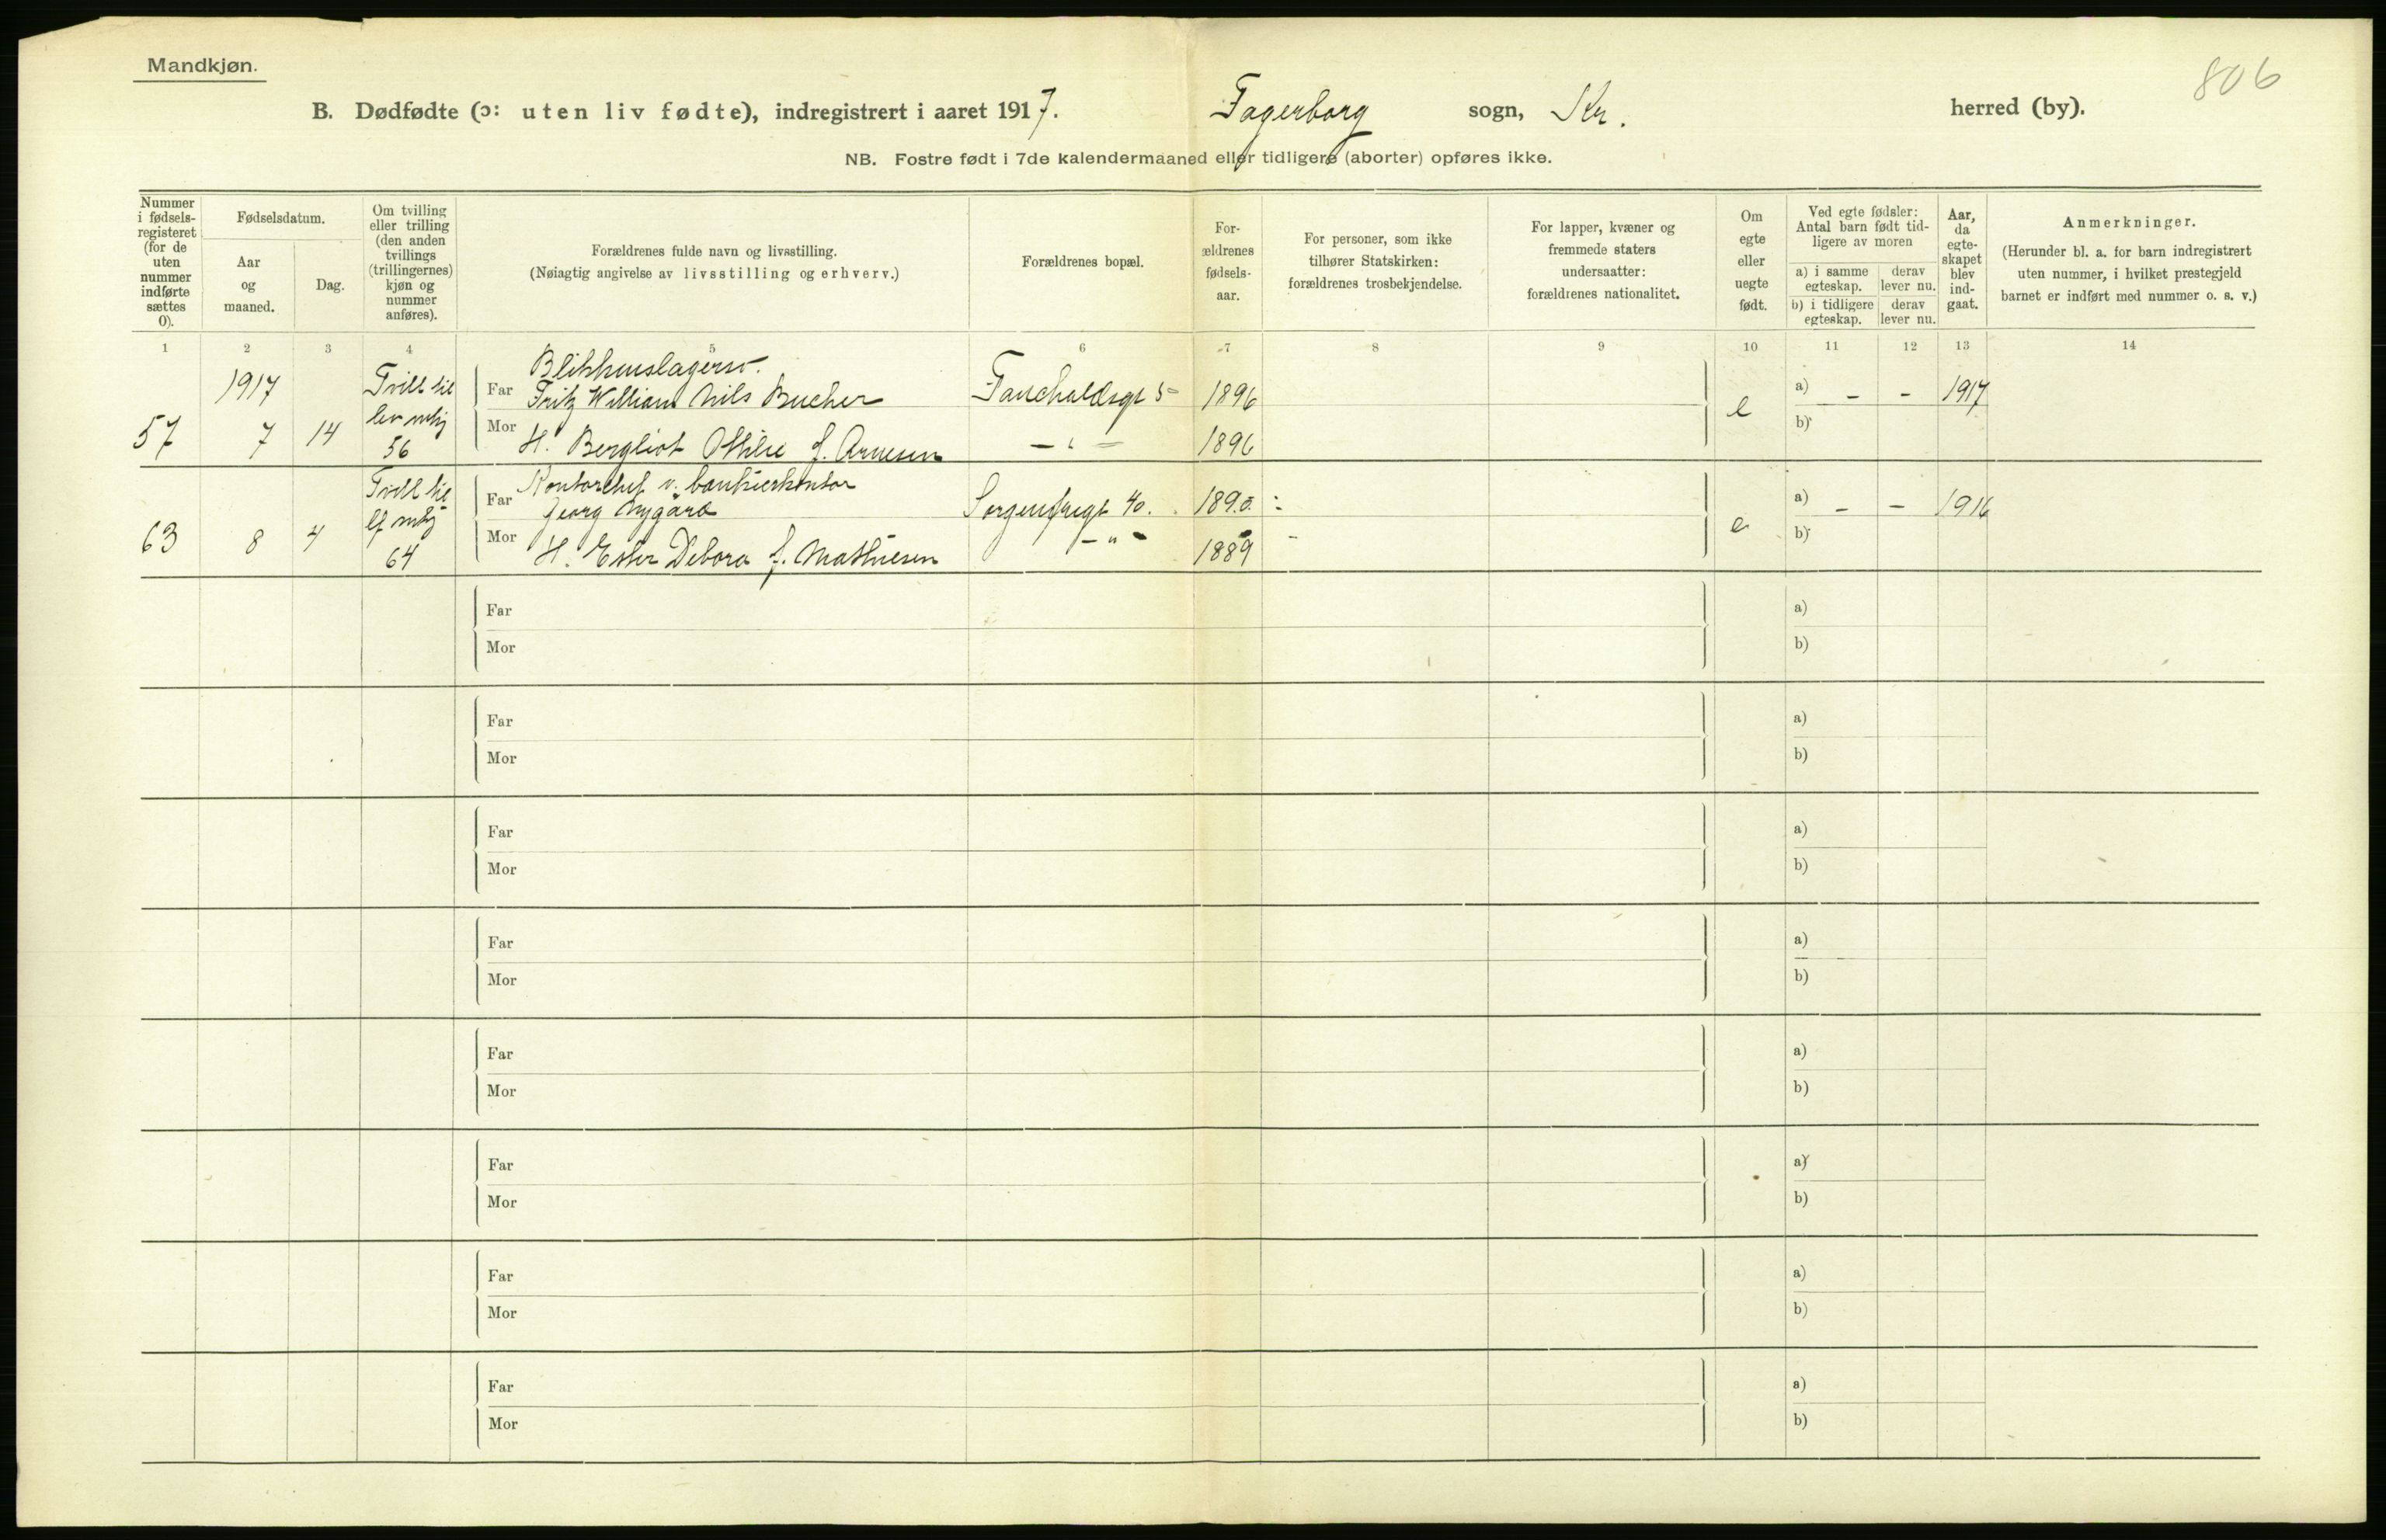 Mandkjøn.
806
B. Dødfødte (ɔ: uten liv fødte), indregistrert i aaret 1917. Fagerborg sogn, Kr. herred (by).
NB. Fostre født i 7de kalendermaaned eller tidligere (aborter) opføres ikke.
Nummer i fødsels-registeret (for de uten nummer indførte sættes 0).
Fødselsdatum.
Aar og maaned.
Dag.
Om tvilling eller trilling (den anden tvillings (trillingernes) kjøn og nummer anføres).
Forældrenes fulde navn og livsstilling.
(Nøiagtig angivelse av livsstilling og erhverv.)
Forældrenes bopæl.
For-ældrenes fødsels-aar.
For personer, som ikke tilhører Statskirken: forældrenes trosbekjendelse.
For lapper, kvæner og fremmede staters undersaatter: forældrenes nationalitet.
Om egte eller uegte født.
Ved egte fødsler: Antal barn født tid-ligere av moren
a) i samme egteskap.
derav lever nu.
b) i tidligere egteskap.
derav lever nu.
Aar, da egte-skapet blev ind-gaat.
Anmerkninger.
(Herunder bl. a. for barn indregistrert uten nummer, i hvilket prestegjeld barnet er indført med nummer o. s. v.)
1 2 3 4 5 6 7 8 9 10 11 12 13 14
Blikkenslagersv.
1917 Tvill til Far Fritz William Nils Bucher 1896 a) - - 1917
57 7 14 56 Mor H. Bergliot Othilie f. Arnesen - " - 1896 e b)
Tvill til Kontorchef v. bankierkontor
Far Georg Nygård Sorgenfrigt 40. 1890 - a) - - 1916
63 8 4 64 Mor H. Ester Debora f. Mathiesen - " - 1889 - e b)
Far a)
Mor b)
Far a)
Mor b)
Far a)
Mor b)
Far a)
Mor b)
Far a)
Mor b)
Far a)
Mor b)
Far a)
Mor b)
Far a)
Mor b)